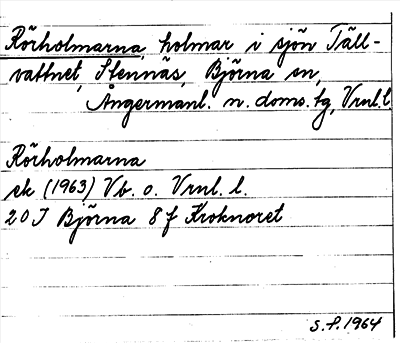 Rörholmarna, holmar i sjön Täll-
vattnet, Stennäs, Björna sn,
Ångermanl. n. doms. tg, Vrnl. l.
Rörholmarna
ek (1963) Vb. o. Vrnl. l.
20 J Björna 8 f Kroknoret
S. f. 1964